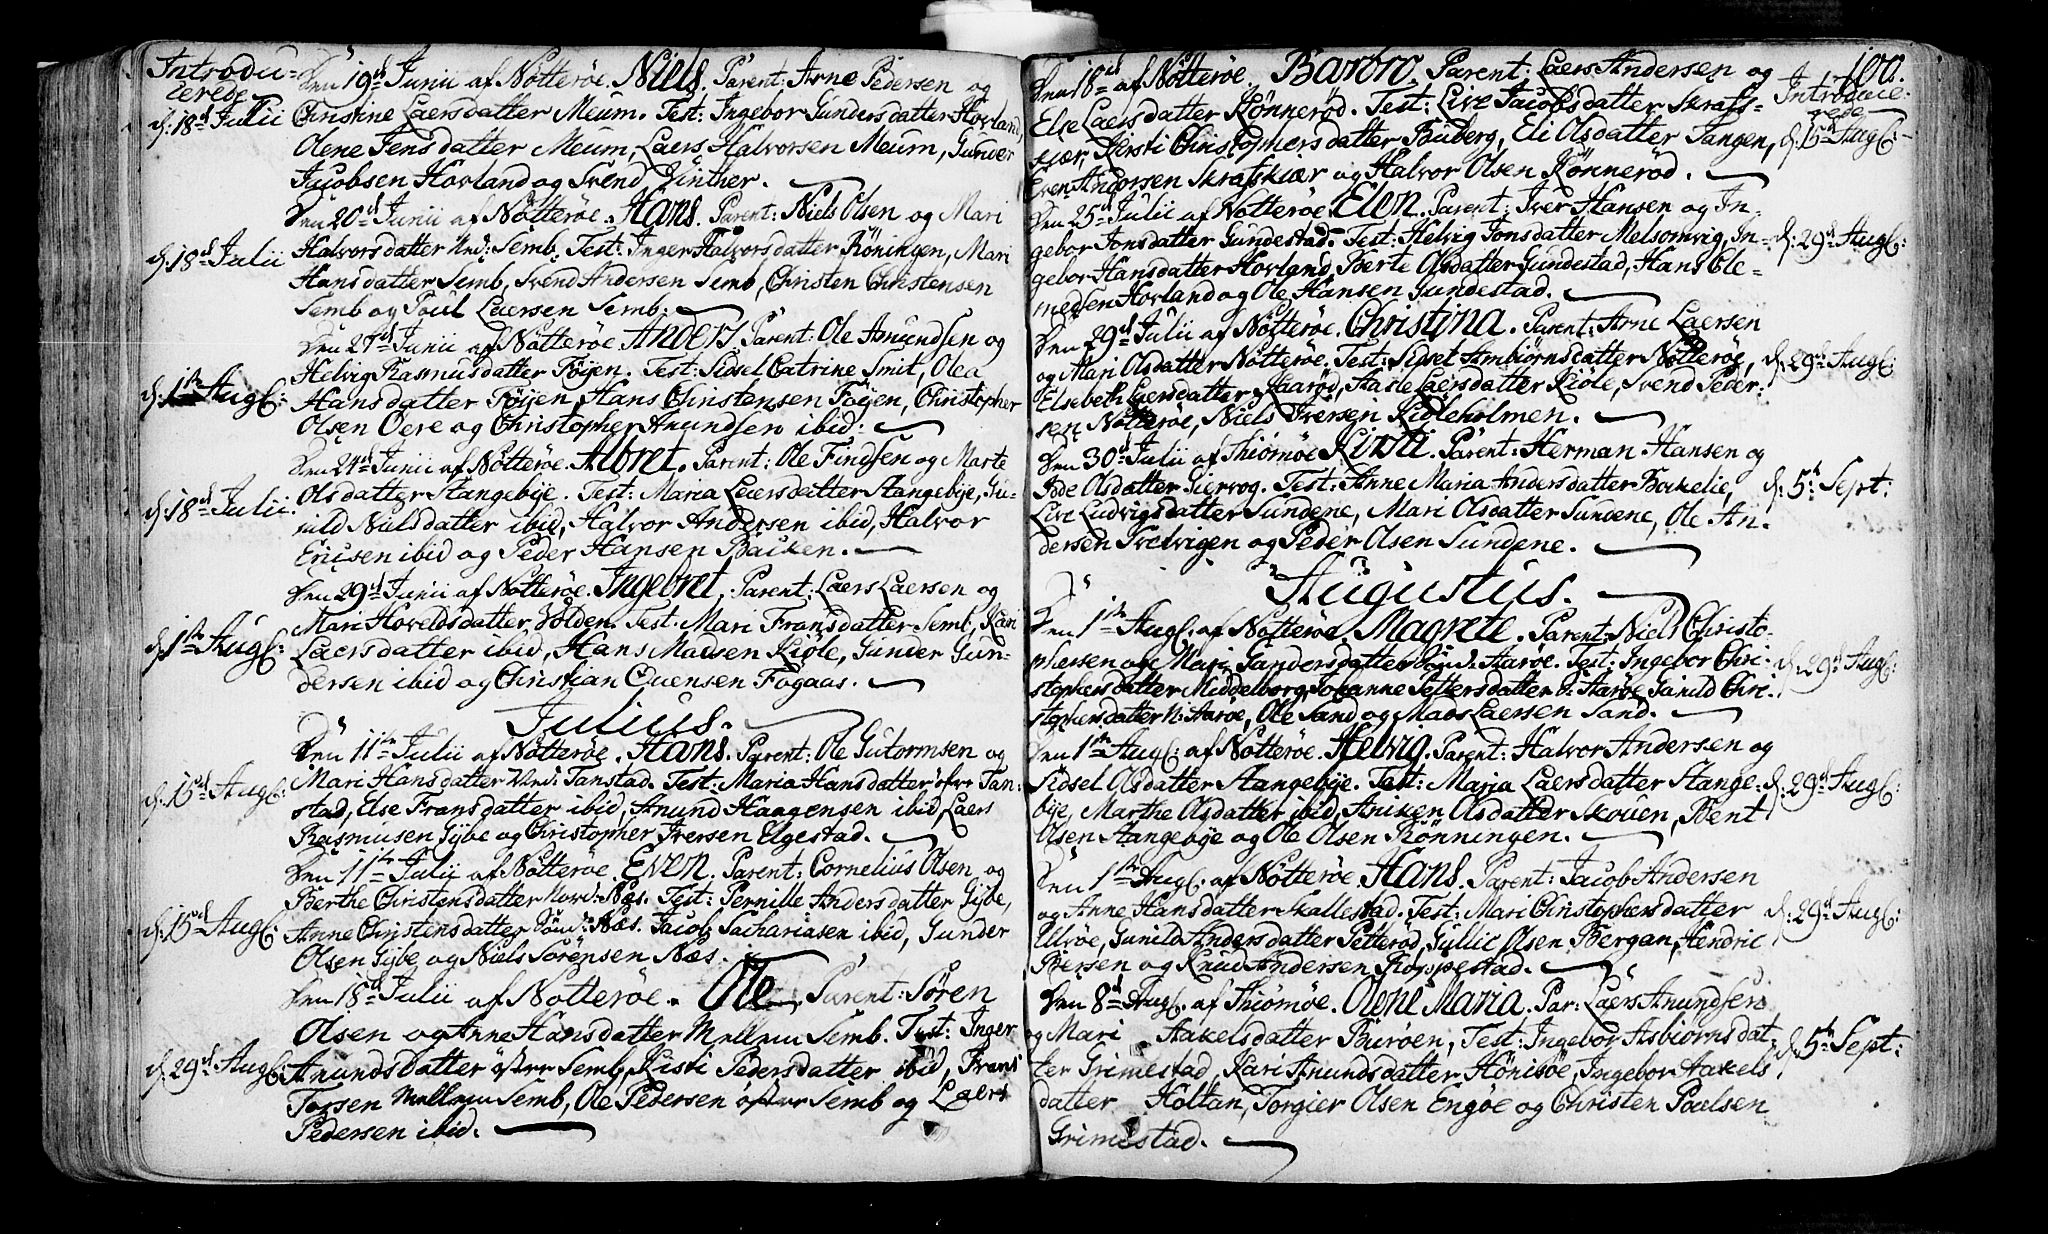 Introdu-
cerede
Den 19de Junii af Nötteröe. Niels. Parent: Arne Pedersen og
d: 18de Julii Christine Laersdatter Meum. Test: Ingebor Gundersdatter Hovland,
Olene Jensdatter Meum, Laers Halvorsen Meum, Gunder
Jacobsen Hovland og Svend Vinther.
Den 20de Junii af Nötteröe. Hans. Parent: Niels Olsen og Mari
d: 18de Julii Halvorsdatter Nrd: Semb. Test: Inger Halvorsdatter Röningen, Mari
Hansdatter Semb, Svend Andersen Semb, Christen Christensen
Semb og Poul Laersen Semb.
Den 21de Junii af Nötteröe Anders Parent: Ole Anundsen og
Helvig Rasmusdatter Föyen. Test: Sidsel Catrine Smit, Olea
d: 1ste Augs: Hansdatter Föyen, Hans Christensen Föyen, Christopher
Olsen Oere og Christopher Anundsen ibid:
Den 24de Junii af Nötteröe. Albret. Parent: Ole Findsen og Marte
d: 18de Julii Olsdatter Stangebÿe. Test: Maria Laersdatter Stangebÿe, Gu-
nild Nielsdatter ibid, Halvor Andersen ibid, Halvor
Ericsen ibid og Peder Hansen Backen.
Den 29de Junii af Nötteröe. Ingebret. Parent: Laers Laersen og
Mari Hoveldsdatter Volden. Test: Mari Fransdatter Semb, Kari
d: 1ste Augs: Laersdatter ibid, Hans Madsen Kiöle, Gunder Gun-
dersen ibid og Christian Evensen Fogaas.
Julius.
Den 11te Julii af Nötteröe. Hans. Parent: Ole Gutormsen og
d: 15de Augs: Mari Hansdatter Tanstad. Test: Maria Hansdatter öfre Tan-
stad, Else Fransdatter ibid, Anund Haagensen ibid, Laers
Rasmusen Gÿbe og Christopher Iversen Elgestad.
Den 11te Julii af Nötteröe. Even. Parent: Cornelius Olsen og
Berthe Christensdatter Nord: Næs. Test: Pernille Andersdatter Gÿbe,
d: 15de Augs: Anne Christensdatter Sönd: Næs. Jacob Zachariasen ibid, Gunder
Olsen Gÿbe og Niels Sörensen Næs.
Den 18de Julii af Nötteröe. Ole. Parent: Sören
Olsen og Anne Hansdatter Mellem Semb. Test: Inger
d: 29de Augs: Anundsdatter öster Semb, Kisti Pedersdatter ibid, Frans
Torsen Mellem Semb, Ole Pedersen öster Semb og Laers
Pedersen ibid.
100.
Den 18de af Nötteröe. Barbro. Parent: Laers Andersen og Introduce-
Else Laersdatter Rönneröd. Test: Live Jacobsdatter Skrafs- rede
kiær, Kersti Christophersdatter Buberg, Eli Olsdatter Tangen, d: 15de Augs:
Even Andersen Skrafskiær og Halvor Olsen Rönneröd.
Den 25de Julii af Nötteröe. Elen. Parent: Iver Hansen og In-
gebor Jonsdatter Gundestad. Test: Helvig Jonsdatter Melsomvig, In- d: 29de Augs:
gebor Hansdatter Hovland, Berte Olsdatter Gundestad, Hans Cle-
medsen Hovland og Ole Hansen Gundestad.
Den 29de Julii af Nötteröe. Christina. Parent: Arne Laersen
og Mari Olsdatter Nötteröe. Test: Sidsel Ambiörnsdatter Nötteröe, d: 29de Augs:
Elsebeth Laersdatter Aaröd, Karie Laersdatter Kiöle, Svend Peder-
sen Nötteröe, Niels Iversen Kiöleholmen.
Den 30de Julii af Thiömöe Kirsti. Parent: Herman Hansen og
Ode Olsdatter Giervog. Test: Anne Maria Andersdatter Backelie, d: 5te Sept:
Live Ludvigsdatter Sundene, Mari Olsdatter Sundene, Ole An-
dersen Tvedvigen og Peder Olsen Sundene.
Augustus.
Den 1ste Augs: af Nötteröe. Magrete. Parent: Niels Christo-
phersen og Mari Gundersdatter Sönd: Aaröe. Test: Ingebor Chri- d: 29de Augs:
stophersdatter Middelborg, Johanne Pettersdatter S: Aaröe, Gunild Chri-
stophersdatter N: Aaröe, Ole Sand og Mads Laersen Sand.
Den 1ste Augs: af Nötteröe. Helvig. Parent: Halvor Andersen og
Sidsel Olsdatter Stangebÿe. Test: Maria Laersdatter Stange- d: 29de Augs:
bÿe, Marthe Olsdatter ibid, Aniken Olsdatter Skouen, Bent
Olsen Stangebÿe og Ole Olsen Rönningen.
Den 1ste Augs: af Nötteröe. Hans. Parent: Jacob Andersen
og Anne Hansdatter Skallestad. Test: Mari Christophersdatter d: 29de Augs:
Ulvöe, Gunild Andersdatter Petteröd, Gullic Olsen Bergan, Hendric
Bersen og Knud Andersen Roppestad.
Den 8de Augs: af Thiömöe. Olene Maria. Par: Laers Anundsen
og Mari Aakelsdatter Buröen, Test: Ingebor Asbiörnsdat- d: 5te Sept:
ter Grimestad, Kari Anundsdatter Hönisöe, Ingebor Aakels
datter Holtan, Torgier Olsen Engöe og Christen Paelsen
Grimestad.